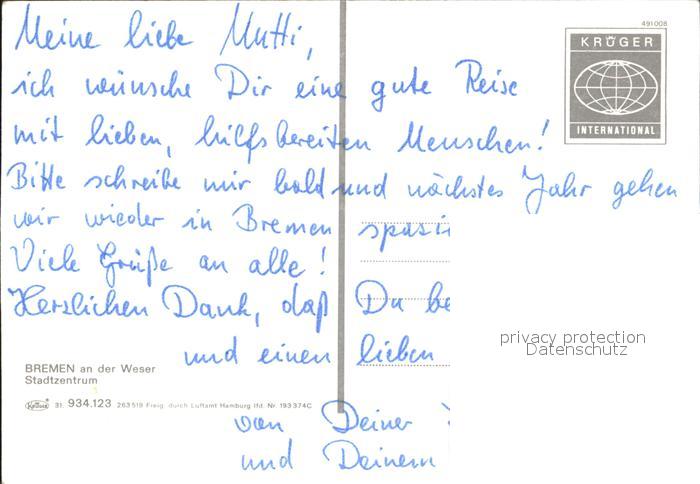 Meine liebe Mutti,
ich wünsche Dir eine gute Reise
mit lieben, hilfsbereiten Menschen!
Bitte schreibe mir bald und nächstes Jahr gehen
wir wieder in Bremen spazi
Viele Grüße an alle!
Herzlichen Dank, daß Du be
und einen lieben
von Deiner
und Deinem
491008
KRÜGER
INTERNATIONAL
privacy protection
Datenschutz
BREMEN an der Weser
Stadtzentrum
Krüger 31. 934.123 263519 Freig. durch Luftamt Hamburg lfd. Nr. 193374C